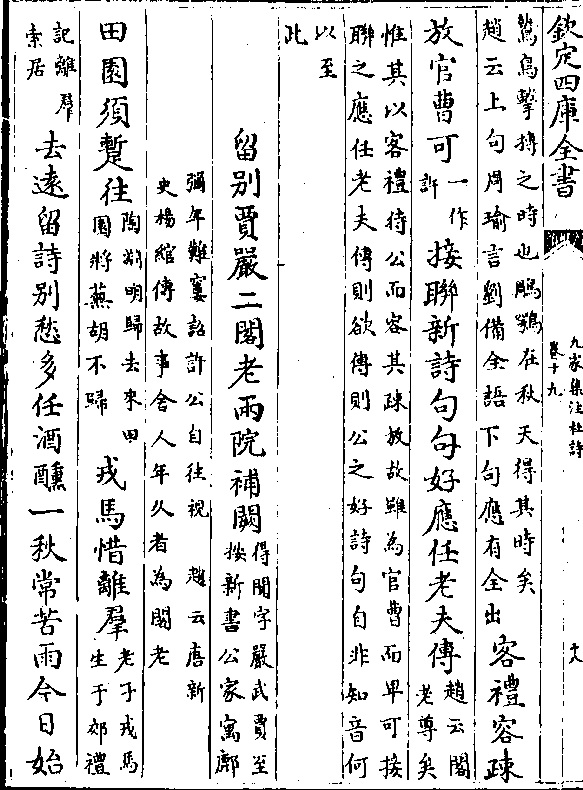 欽定四庫全書
九家集注杜詩
卷十九
十八
鷙鳥擊搏之時也鵰鶚在秋天得其時矣
趙云上句周瑜言劉備全語下句應有全出
客禮容疎
放官曹可
一作
許
接聯新詩句句好應任老夫傳
趙云閣
老尊矣
惟其以客禮待公而容其疎放故雖為官曹而卑可接
聯之應任老夫傳則欲傳則公之好詩句自非知音何
以至
此
留别賈嚴二閣老兩院補闕
得聞字嚴武賈至
按新書公家寓鄜
彌年難窶詔許公自往視 趙云唐新
史楊綰傳故事舍人年久者為閣老
田園須蹔往
陶淵明歸去來田
園將蕪胡不歸
戎馬惜離羣
老子戎馬
生于郊禮
記離羣
索居
去遠留詩别愁多任酒醺一秋常苦雨今日始